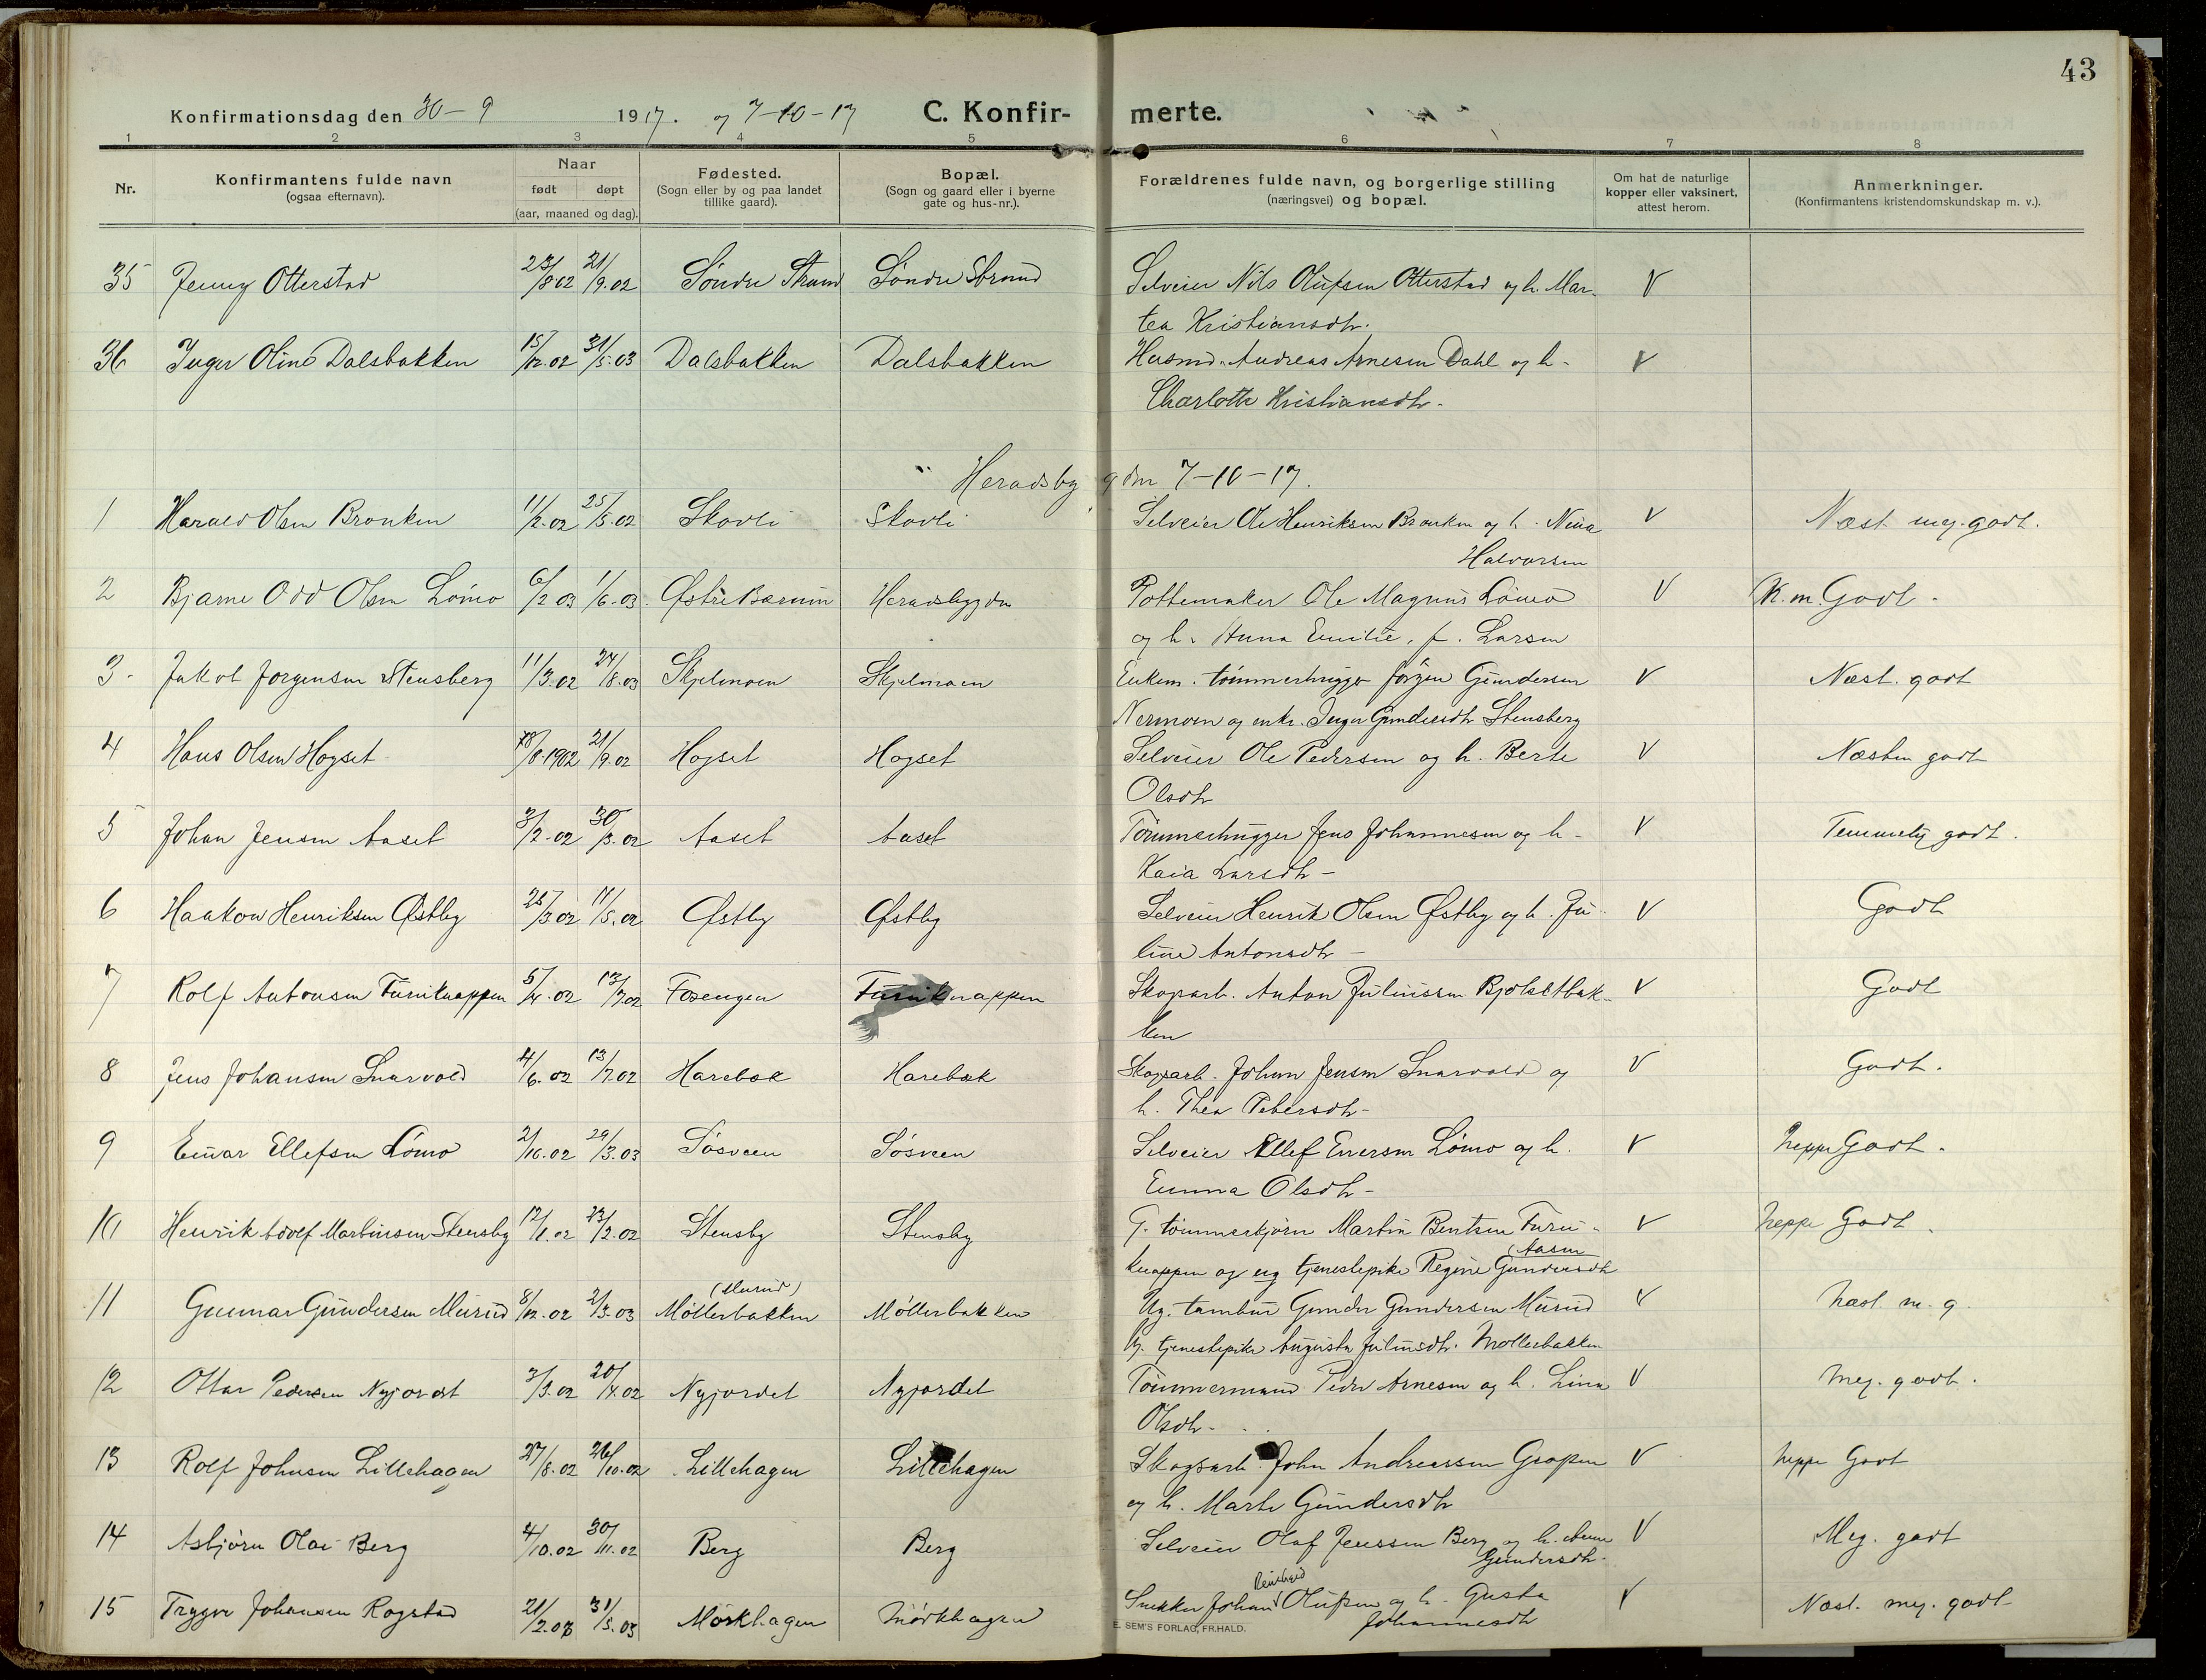 43
Konfirmationsdag den 30-9 1917. og 7-10-17 C. Konfir- merte.
1 2 3 4 5 6 7 8
Nr. Konfirmantens fulde navn (ogsaa efternavn). Naar født døpt (aar, maaned og dag). Fødested. (Sogn eller by og paa landet tillike gaard). Bopæl. (Sogn og gaard eller i byerne gate og hus-nr.). Forældrenes fulde navn, og borgerlige stilling (næringsvei) og bopæl. Om hat de naturlige kopper eller vaksinert, attest herom. Anmerkninger. (Konfirmantens kristendomskundskap m. v.).
35 Jenny Otterstad 23/8 02 21/9.02 Søndre Strand Søndre Strand Selveier Nils Olufsen Otterstad og h. Mar- V
tea Kristiansdtr.
36 Inger Oline Dalsbakken 15/12.02 31/5.03 Dalsbakken Dalsbakken Husmd. Andreas Arnesen Dahl og h- V
Charlotte Kristiansdtr-
Heradsbygden 7-10-17.
1 Harald Olsen Bronken 11/2.02 25/5.02 Skovli Skovli Selveier Ole Henriksen Bronken og h. Nina V Næst. meg. godt.
Halvorsen
2 Bjarne Odd Olsen Lömo 6/2 03 1/6.03 Østre Bærum Heradsbygden Pottemaker Ole Magnus Lömo V N.m. Godt.
og h. Anna Emilie, f. Larsen
3. Jakob Jørgensen Stensberg 11/3.02 24/8.03 Skjelmoen Skjelmoen Enkem. tömmerhugger Jörgen Gundersen V Næst. godt
Nermoen og enke. Inger Gundersdtr Stensberg
4 Hans Olsen Hogset 18/8.1902 21/9.02 Hogset Hogset Selveier Ole Pedersen og h. Berte V Næsten godt
Olsdtr
5 Johan Jensen Aaset 3/2.02 30/3.02 Aaset Aaset Tömmerhugger Jens Johannesen og h- V Temmelig godt.
Kaia Larsdtr-
6 Haakon Henriksen Østby 25/3 02 11/5.02 Østby Østby Selveier Henrik Olsen Østby og h. Ju- V Godt
line Antonsdtr-
7 Rolf Antonsen Furuknappen 5/4.02 13/7 02 Fosengen Furuknappen Skogarb. Anton Juliussen Bjølsetbak- V Godt
ken
8 Jens Johansen Snarvold 4/6.02 13/7.02 Harebæk Harebæk Skogarb. Johan Jensen Snarvold og V Godt.
h. Thea Petersdtr-
9 Einar Ellefsen Lömo 2/10.02 29/3.03 Søsveen Søsveen Selveier Ellef Enersen Lömo og h. V neppe Godt.
Emma Olsdtr-
10 Henrik Adolf Martinsen Stensby 12/1.02 23/2.02 Stensby Stensby G. tömmerkjörer Martin Bentsen Furu- V neppe Godt.
knappen og ug tjenestepike Regine Gundersdtr (Aasen
11 Gunnar Gundersen Murud 8/12.02 2/3.03 (Murud) Møllerbakken Møllerbakken Ug. tambur Gunder Gundersen Murud V næst. m. g.
Ug. tjenestepike Augusta Juliusdtr. Møllerbakken
12 Ottar Pedersen Nyjordet 3/3.02 20/4.02 Nyjordet Nyjordet Tömmermand Peder Arnesen og h. Lina V Meg. godt.
Olsdtr-
13 Rolf Johnsen Lillehagen 27/8.02 26/10.02 Lillehagen Lillehagen Skogsarb. John Andreassen Gropen V neppe Godt
og h. Marte Gundersdtr
14 Asbjörn Olav Berg 4/10.02 30/11.02 Berg Berg Selveier Olaf Jenssen Berg og h. Anne V Meg. godt
Gundersdtr-
15 Trygve Johansen Rogstad 21/2.03 31/5.03 Mørkhagen Mørkhagen Snekker Johan Reinhard Olufsen og h. Gusta V Næst. meg. godt
Johannesdtr
E. SEM'S FORLAG, FR.HALD.